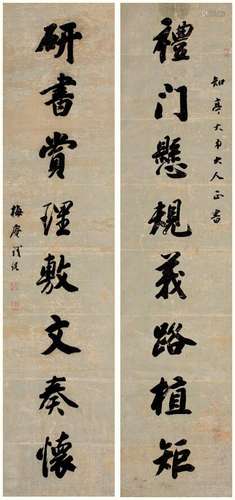 知亭大弟大人正書
禮門懸規義路植矩
研書賞理敷文奏懷
梅庵鐵保